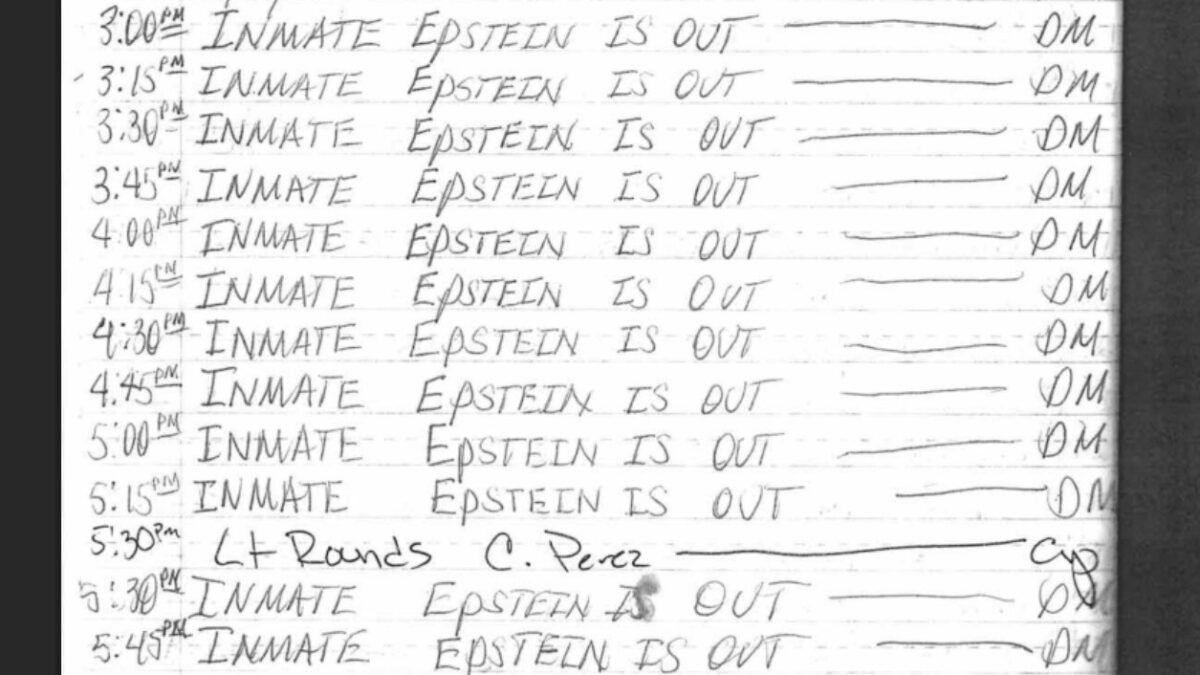 3:00PM INMATE EPSTEIN IS OUT DM
3:15PM INMATE EPSTEIN IS OUT DM
3:30PM INMATE EPSTEIN IS OUT DM
3:45PM INMATE EPSTEIN IS OUT DM
4:00PM INMATE EPSTEIN IS OUT DM
4:15PM INMATE EPSTEIN IS OUT DM
4:30PM INMATE EPSTEIN IS OUT DM
4:45PM INMATE EPSTEIN IS OUT DM
5:00PM INMATE EPSTEIN IS OUT DM
5:15PM INMATE EPSTEIN IS OUT DM
5:30PM Lt Rounds C. Perez
5:30PM INMATE EPSTEIN IS OUT
5:45PM INMATE EPSTEIN IS OUT DM